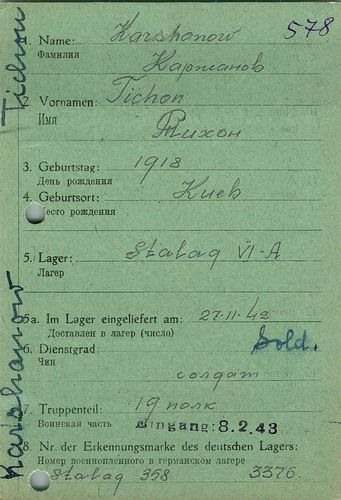 578
1. Name: Karshonow
Фамилия Каржанов
2. Vornamen: Tichon
Имя Тихон
3. Geburtstag: 1918
День рождения
4. Geburtsort: Киев
Место рождения
5. Lager: Stalag VI-A
Лагер
5a. Im Lager eingeliefert am: 27.11.42
Доставлен в лагер (число)
6. Dienstgrad: Sold.
Чин солдат
7. Truppenteil: 19 полк
Воинская часть Eingang: 8.2.43
8. Nr. der Erkennungsmarke des deutschen Lagers:
Номер военнопленного в германском лагере
Stalag 358 3376.
Karshanow Tichon